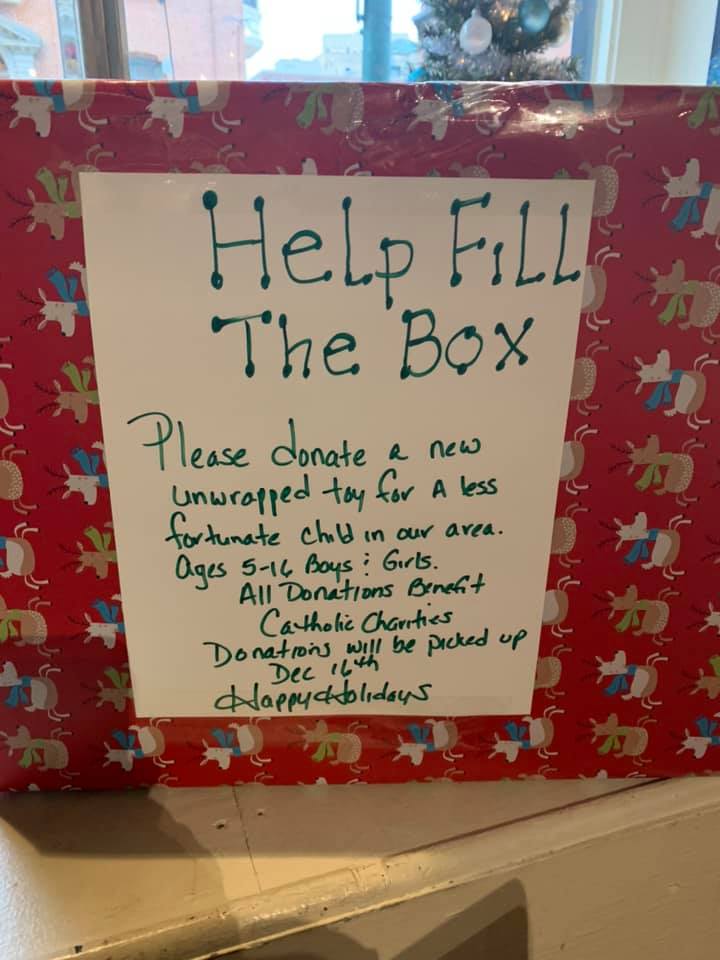 Help Fill
The Box
Please donate a new
unwrapped toy for A less
fortunate child in our area.
Ages 5-16 Boys & Girls.
All Donations Benefit
Catholic Charities
Donations will be picked up
Dec 16th
Happy Holidays